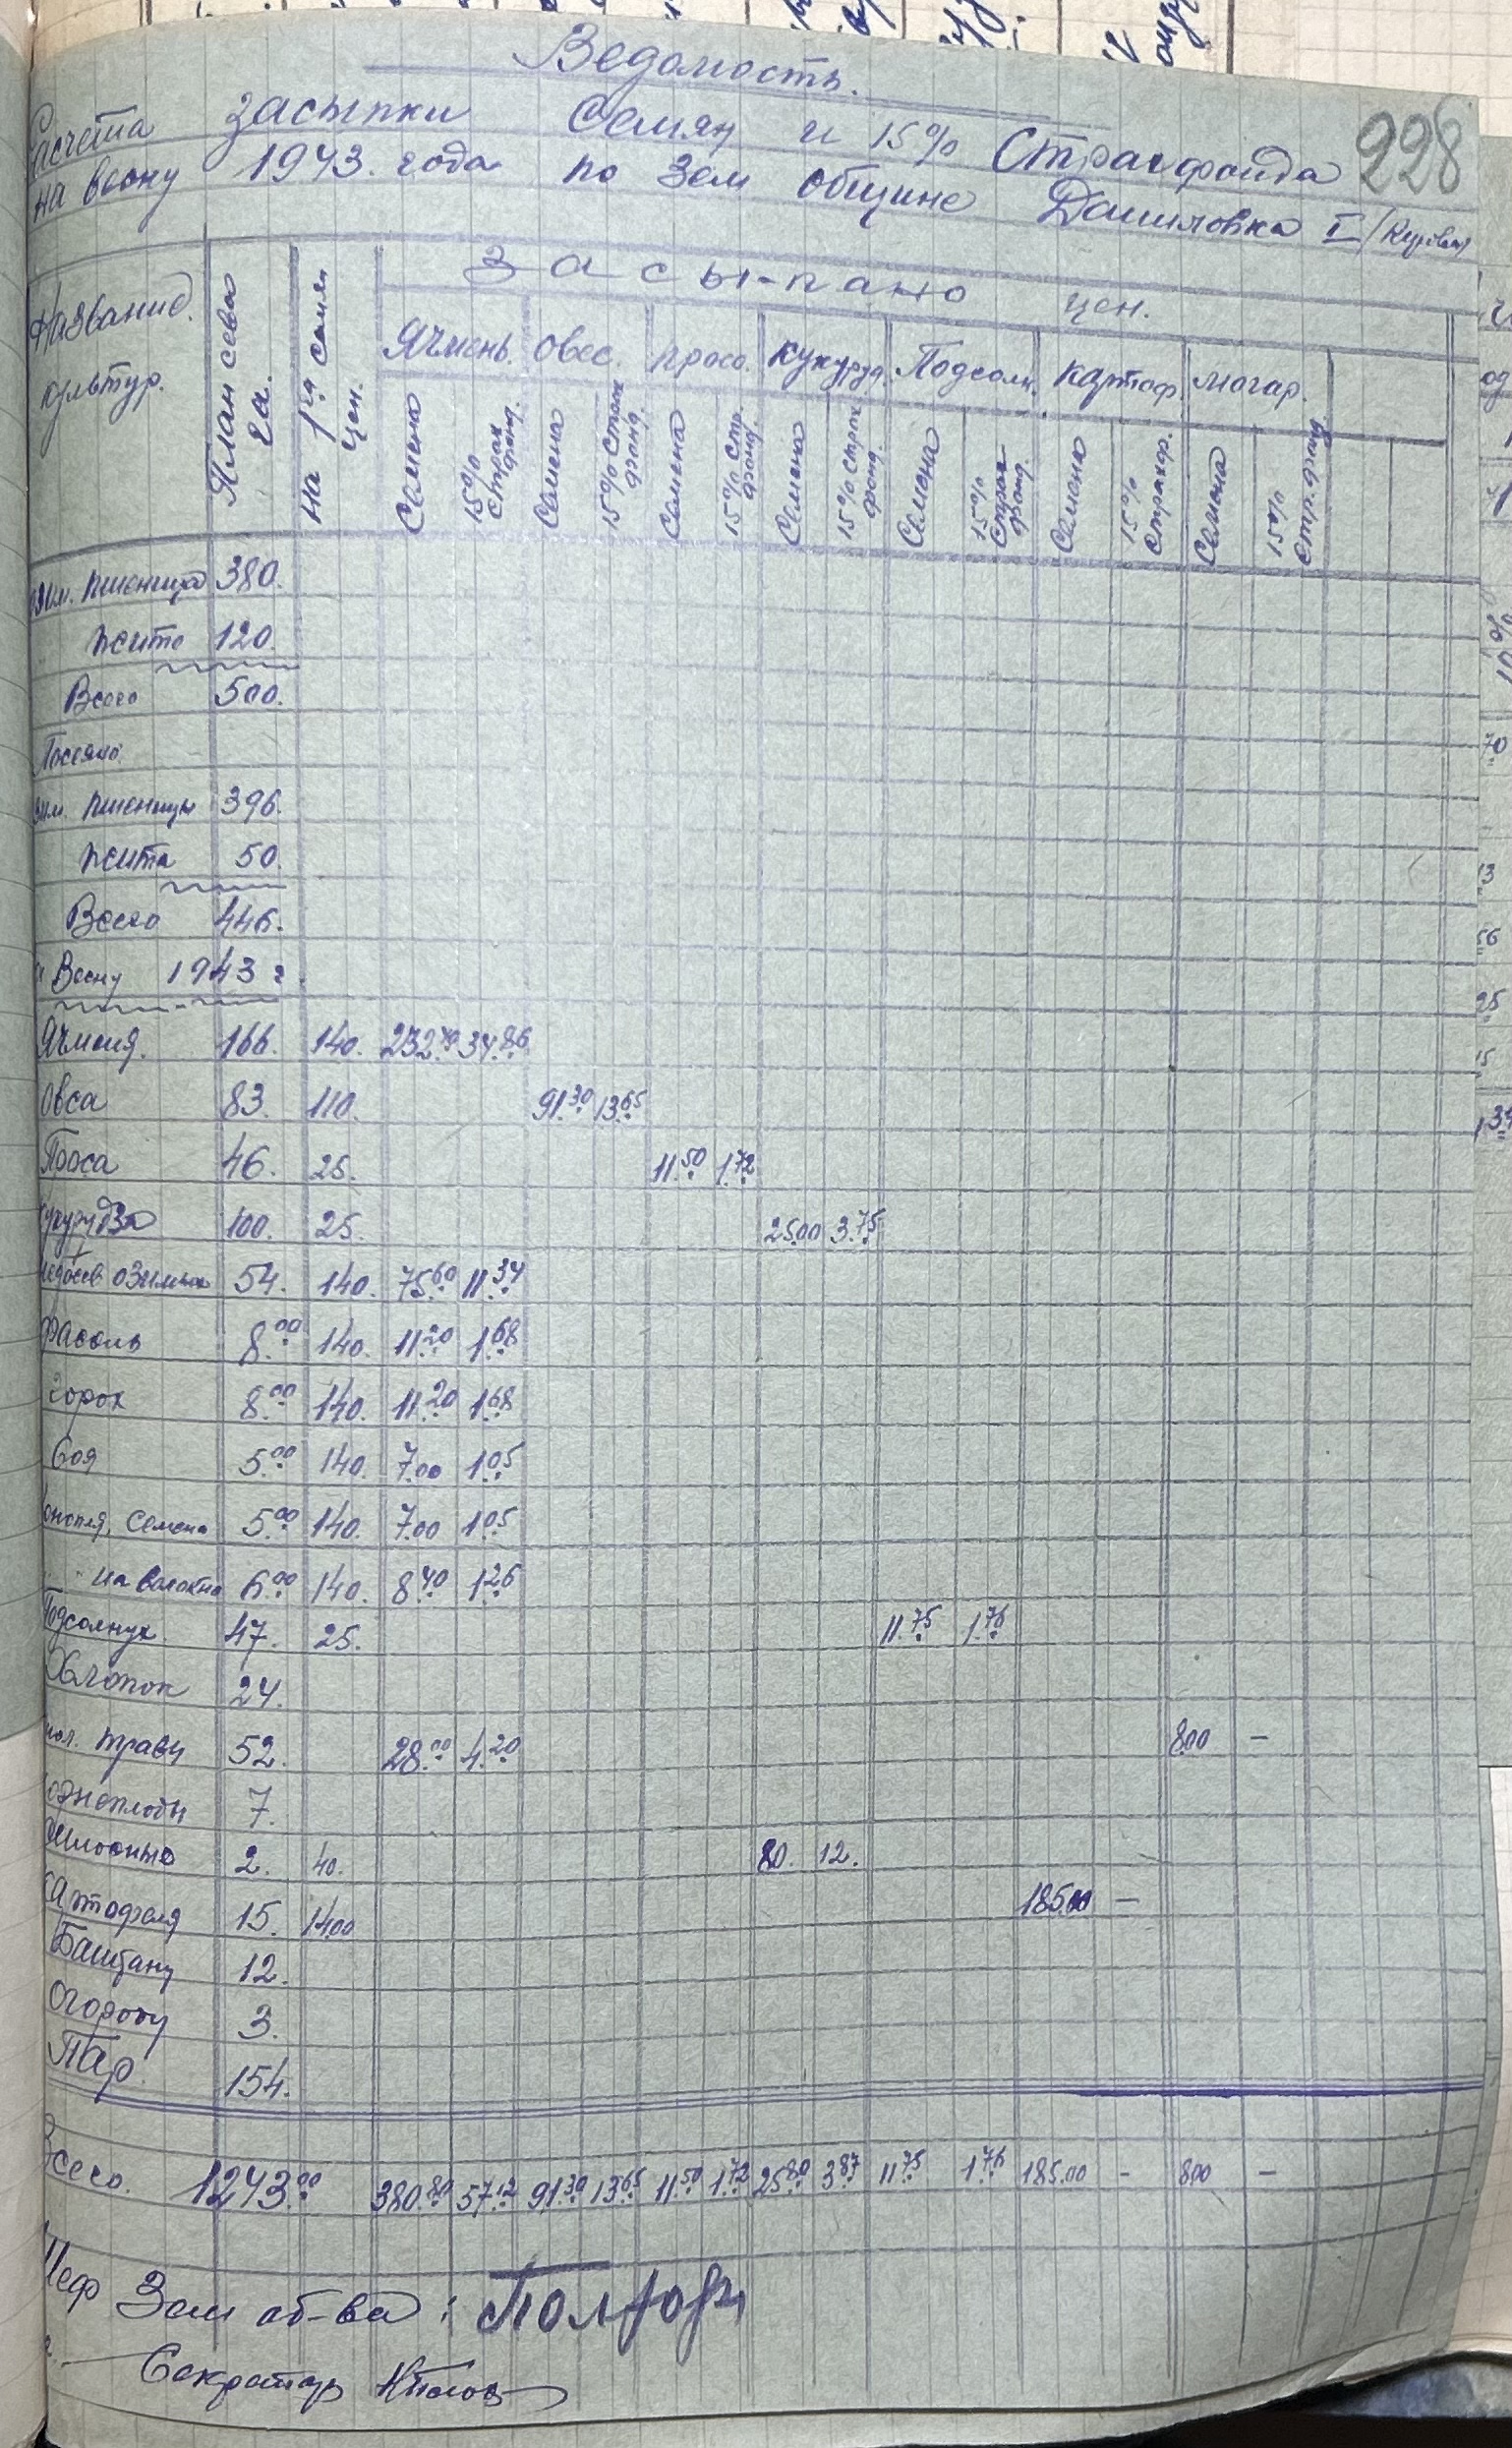 Ведомость.
Расчета засыпки Семян и 15% Страхфонда 228
на весну 1943. года по Зем общине Даниловка I
Название культур.
План сева га.
На 1 га семян цен.
Засы-пано цен.
Ячмень. Овес. Просо. Кукуруд. Подсолн. Картоф. могар.
Семена 15% страх фонд. Семена 15% страх фонд. Семена 15% стр. фонд. Семена 15% страх фонд. Семена 15% страх фонд. Семена 15% страхф. Семена 15% стр. фонд
Озим. пшеница 380.
" жито 120.
Всего 500.
Посеяно
Озим. пшеницы 396.
жита 50.
Всего 446.
На Весну 1943 г.
Ячменя. 166. 140. 232.40 34.86
Овса 83. 110. 91.30 13.65
Проса 46. 25. 11.50 1.72
Кукурудза 100. 25. 25.00 3.75
Недосев озимых 54. 140. 75.60 11.34
Фасоль 8.00 140. 11.20 1.68
Горох 8.00 140. 11.20 1.68
Соя 5.00 140. 7.00 1.05
Конопля, семена 5.00 140. 7.00 1.05
" на волокно 6.00 140. 8.40 1.26
Подсолнух. 47. 25. 11.75 1.76
Хлопок 24.
трави 52. 28.00 4.20 8.00 –
7.
2. 40. 80. 12.
Картофеля 15. 14.00 185.00 –
Баштану 12.
Огороду 3.
Пар. 154.
Всего. 1243.00 380.80 57.12 91.30 13.65 11.50 1.72 25.80 3.87 11.75 1.76 185.00 – 8.00 –
Шеф Зем об-ва:
Секретарь